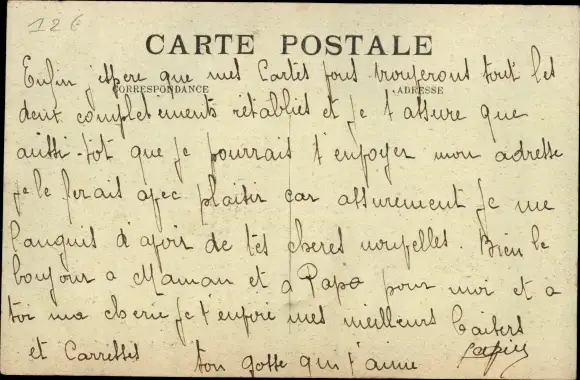 12 €
CARTE POSTALE
CORRESPONDANCE
ADRESSE
Enfin j'espere que mes Cartes vous trouverons tout les
deux completements retablies et je t'assure que
aussi-tôt que je pourrais t'envoyer mon adresse
je le ferais avec plaisir car assurement je me
languis d'avoir de tes cheres nouvelles. Bien le
bonjour a Maman et a Papa pour moi et a
toi ma cherie je t'envoie mes meilleurs baisers
et Carresses ton gosse qui t'aime